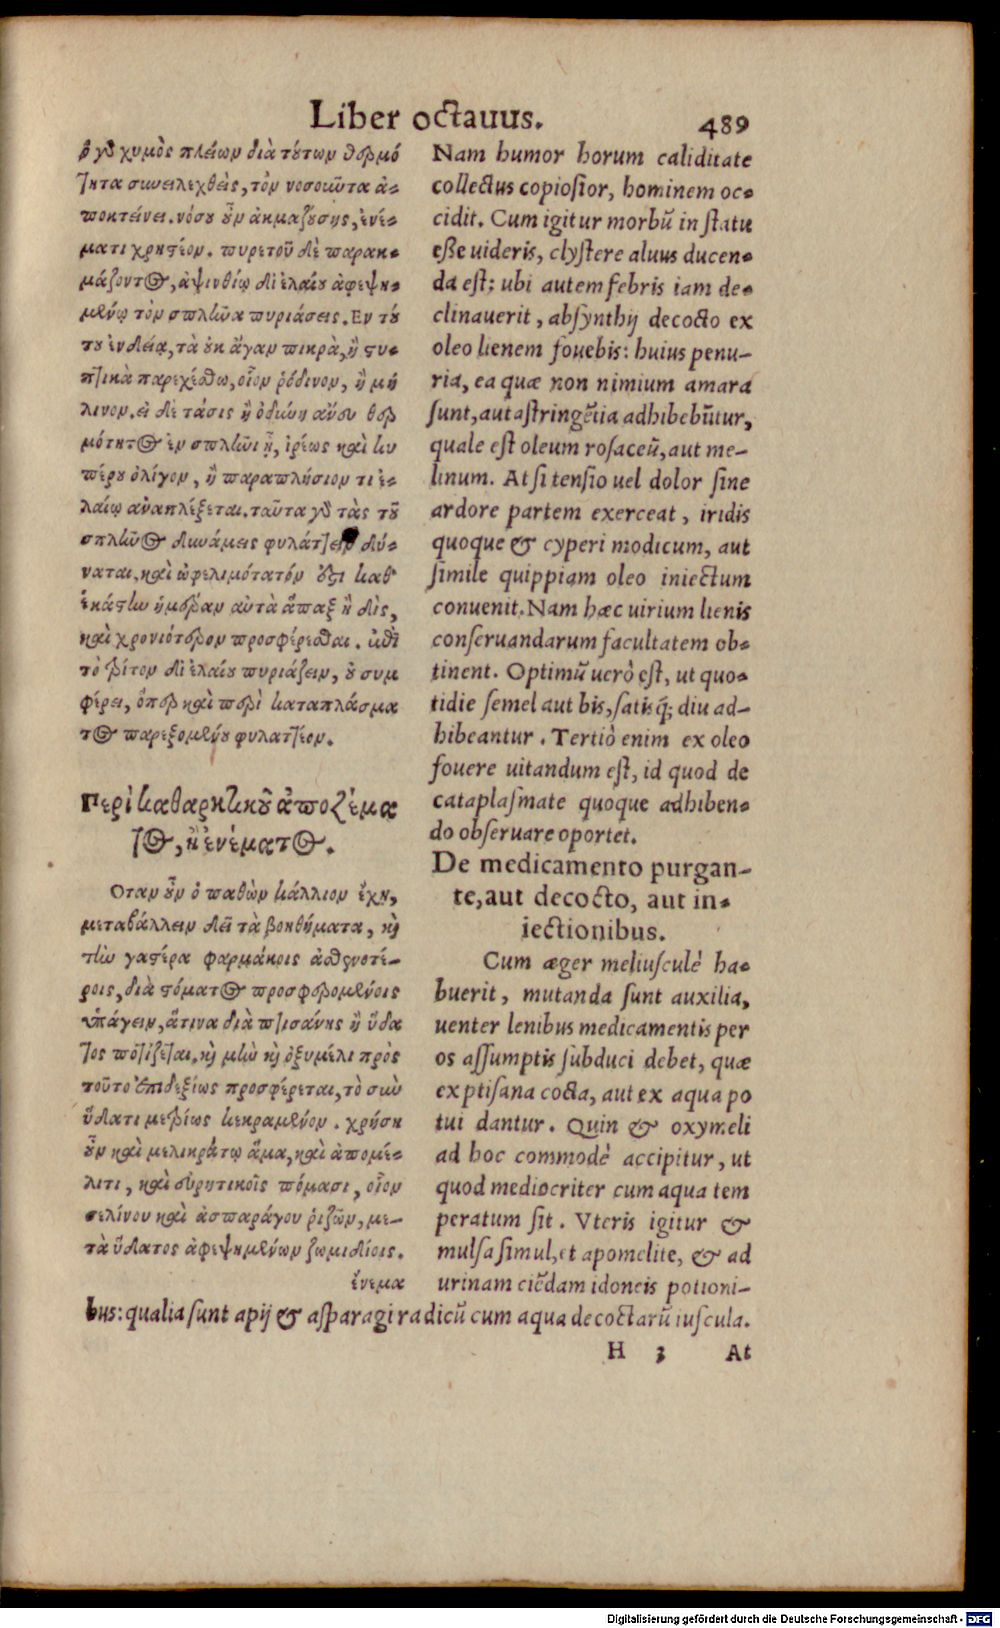 Liber octauus.
489
ὁ γὰρ χυμὸς πλείων διὰ τούτων θερμό
τητα συνειλεχθεὶς, τὸν νοσοῦντα ἀ-
ποκτείνει. νόσου οὖν ἀκμαζούσης, ἐνέ-
ματι χρηστέον. πυρετοῦ δὲ παρακ-
μάζοντος, ἀψινθίῳ δι' ἐλαίου ἀφεψη-
μένῳ τὸν σπλῆνα πυριάσεις. Εν τού
του ἐνδείᾳ, τὰ οὐκ ἄγαν πικρὰ, ἢ στυ-
πτικὰ παρεχέσθω, οἷον ῥόδινον, ἢ μή
λινον. εἰ δὲ τάσις ἢ ὀδύνη ἄνευ θερ
μότητος ἐν σπληνὶ ᾖ, ἴρεως καὶ κυ
πέρου ὀλίγον, ἢ παραπλήσιον τι ἐ-
λαίῳ ἀναπλέξεται. ταῦτα γὰρ τὰς τοῦ
σπληνὸς δυνάμεις φυλάττειν δύ-
ναται, καὶ ὠφελιμότατόν ἐστι καθ'
ἑκάστην ἡμέραν αὐτὰ ἅπαξ ἢ δὶς,
καὶ χρονιότερον προσφέρεσθαι.
τὸ τρίτον δι' ἐλαίου πυριάζειν, οὐ συμ
φέρει, ὅπερ καὶ περὶ καταπλάσμα
τος παρεξομένου φυλακτέον.
Περὶ καθαρτικοῦ ἀποζέμα
τος, ἢ ἐνέματος.
Οταν οὖν ὁ παθὼν κάλλιον ἔχῃ,
μεταβάλλειν δεῖ τὰ βοηθήματα, καὶ
τὴν γαστέρα φαρμάκοις ἀσθενεστέ-
ροις, διὰ στόματος προσφερομένοις
ὑπάγειν, ἅτινα διὰ πτισάνης ἢ ὕδα
τος ποτίζεται. καὶ μὴν καὶ ὀξυμέλι πρὸς
τοῦτο ἐπιδεξίως προσφέρεται, τὸ σὺν
ὕδατι μετρίως κεκραμένον. χρήσῃ
οὖν καὶ μελικράτῳ ἅμα, καὶ ἀπομέ-
λιτι, καὶ οὐρητικοῖς πόμασι, οἷον
σελίνου καὶ ἀσπαράγου ῥιζῶν, με-
τὰ ὕδατος ἀφεψημένων ζωμιδίοις.
ἔνεμα
Nam humor horum caliditate
collectus copiosior, hominem oc-
cidit. Cum igitur morbū in statu
esse uideris, clystere aluus ducen-
da est: ubi autem febris iam de-
clinauerit, absynthij decocto ex
oleo lienem fouebis: huius penu-
ria, ea quæ non nimium amara
sunt, aut astringētia adhibebūtur,
quale est oleum rosaceū, aut me-
linum. At si tensio uel dolor sine
ardore partem exerceat, iridis
quoque & cyperi modicum, aut
simile quippiam oleo iniectum
conuenit. Nam hæc uirium lienis
conseruandarum facultatem ob-
tinent. Optimū uerò est, ut quo-
tidie semel aut bis, satisq́; diu ad-
hibeantur. Tertiò enim ex oleo
fouere uitandum est, id quod de
cataplasmate quoque adhiben-
do obseruare oportet.
De medicamento purgan-
te, aut decocto, aut in-
iectionibus.
Cum æger meliusculè ha-
buerit, mutanda sunt auxilia,
uenter lenibus medicamentis per
os assumptis subduci debet, quæ
ex ptisana cocta, aut ex aqua po
tui dantur. Quin & oxymeli
ad hoc commodè accipitur, ut
quod mediocriter cum aqua tem
peratum sit. Vteris igitur &
mulsa simul, et apomelite, & ad
urinam ciēdam idoneis potioni-
bus: qualia sunt apij & asparagi radicū cum aqua decoctarū iuscula.
H 3 At
Digitalisierung gefördert durch die Deutsche Forschungsgemeinschaft - DFG